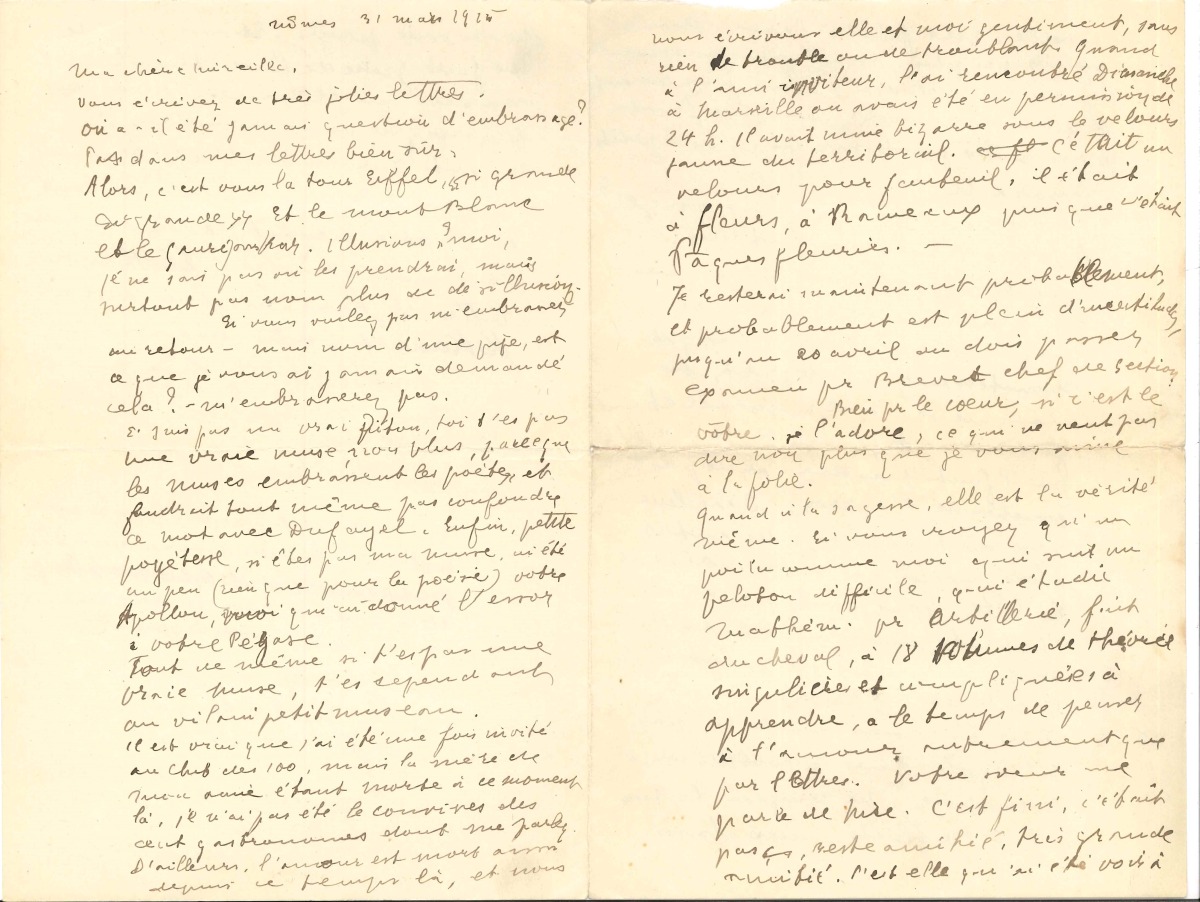 Nîmes 31 mars 1915
Ma chère Mireille,
vous écrivez de très jolies lettres.
Où a-t-il été jamais question d'embrassage?
Pas dans mes lettres bien sûr.
Alors, c'est vous la tour Eiffel, si grande
si grande Et le mont Blanc
et le Gaurisankar. Illusions? moi,
je ne sais pas où les prendrai, mais
surtout pas nom plus de désillusion.
Si vous voulez pas m'embrassez
au retour – mais nom d'une pipe, est
ce que je vous ai jamais demandé
cela? – m'embrasserez pas.
Si suis pas un vrai piton, toi t'es pas
une vraie muse non plus, parce que
les muses embrassent les poètes, et
faudrait tout même pas confondre
ce mot avec Dufayel. Enfin, petite
poyétesse, si êtes pas ma muse, ai été
un peu (rien que pour la poésie) votre
Apollon, moi qui ai donné l'essor
à votre Pégase.
Tout de même si t'es pas une
vraie muse, t'es cependant
un vilain petit museau.
Il est vrai que j'ai été une fois invité
au Club des 100, mais la mère de
mon amie étant morte à ce moment
là, je n'ai pas été le convives des
cent gastronomes dont me parlez
D'ailleurs, l'amour est mort aussi
depuis ce temps là, et nous
nous écrivons elle et moi gentiment, sans
rien de trouble ou de troublant. Quand
à l'ami inviteur, l'ai rencontré Dimanche
à Marseille ou avais été en permission de
24 h. Il avait mine bizarre sous le velours
jaune du territorial. C'était un
velours pour fauteuil, il était
à fleurs, à Rameaux puisque c'était
Pâques fleuries. –
Je resterai maintenant probablement,
et probablement est plein d'incertitudes,
jusqu'au 20 avril ou dois passer
examen pr Brevet chef de section
Bien pr le cœur, si c'est le
vôtre. je l'adore, ce qui ne veut pas
dire non plus que je vous aime
à la folie.
Quand à la sagesse, elle est la vérité
même. Si vous croyez qu'un
poilu comme moi qui suit un
peloton difficile, qui étudie
mathém. pr Artillerie, fait
du cheval, a 18 volumes de théorie
singulières et compliquées à
apprendre, a le temps de penser
à l'amour autrement que
par lettres. Votre sœur me
parle de C'est fini, c'était
pas ça, reste amitié, très grande
amitié. C'est elle qu'ai été voir à